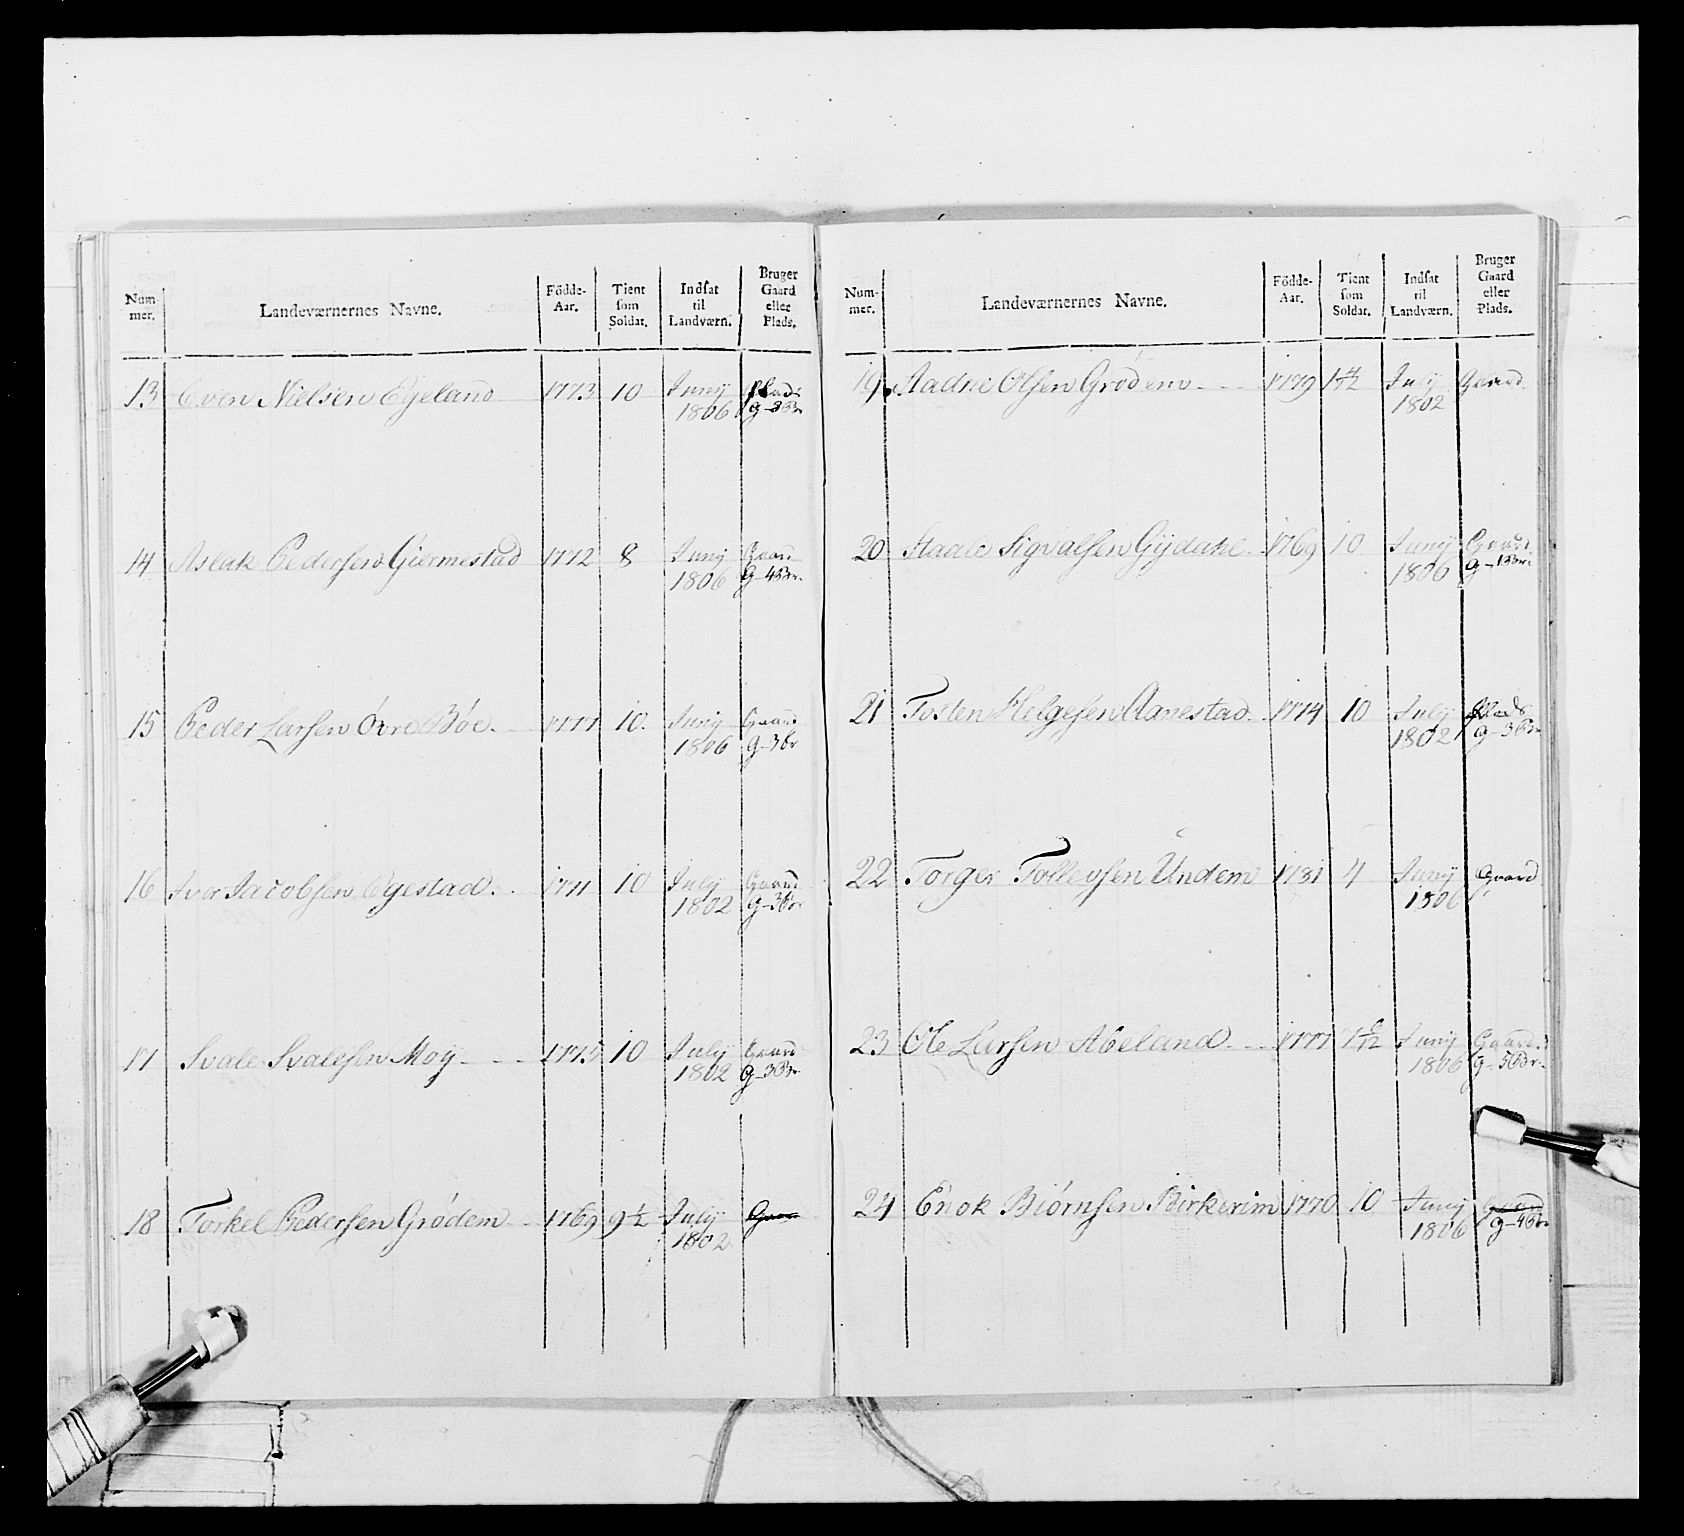 Num-
mer.
Landeværnernes Navne.
Födde-
Aar.
Tient
som
Soldat.
Indsat
til
Landværn.
Bruger
Gaard
eller
Plads.
13 Even Nielsen Eyeland 1773 10 Junij 1806 Plads
14 Aslak Pedersen Giermestad 1772 8 Junij 1806 Gaard
15 Peder Larsen Övre Böe. 1777 10. Junij 1806 Gaard
16 Iver Jacobsen Egestad. 1771 10 July 1802 Gaard
17 Svale Svalesen Moy 1775 10 July 1802 Gaard
18 Torkel Pedersen Grödem 1769 9½ July 1802 Gaar
Num-
mer.
Landeværnernes Navne.
Födde-
Aar.
Tient
som
Soldat.
Indsat
til
Landværn.
Bruger
Gaard
eller
Plads.
19 Aadne Olsen Grödem 1779 July 1802 Gaard
20 Staale Sigvalsen Gydahl 1769 10 Junij 1806 Gaard
21 Tosten Helgesen Aanestad 1774 10 July 1802 Plads
22 Torger Tollevsen Undem 1781 4 Junij 1806 Gaard
23 Ole Larsen Abeland 1777 Junij 1806 Gaard
24 Enok Biörnsen Birkerim 1770 10 Junij 1806 Gaard